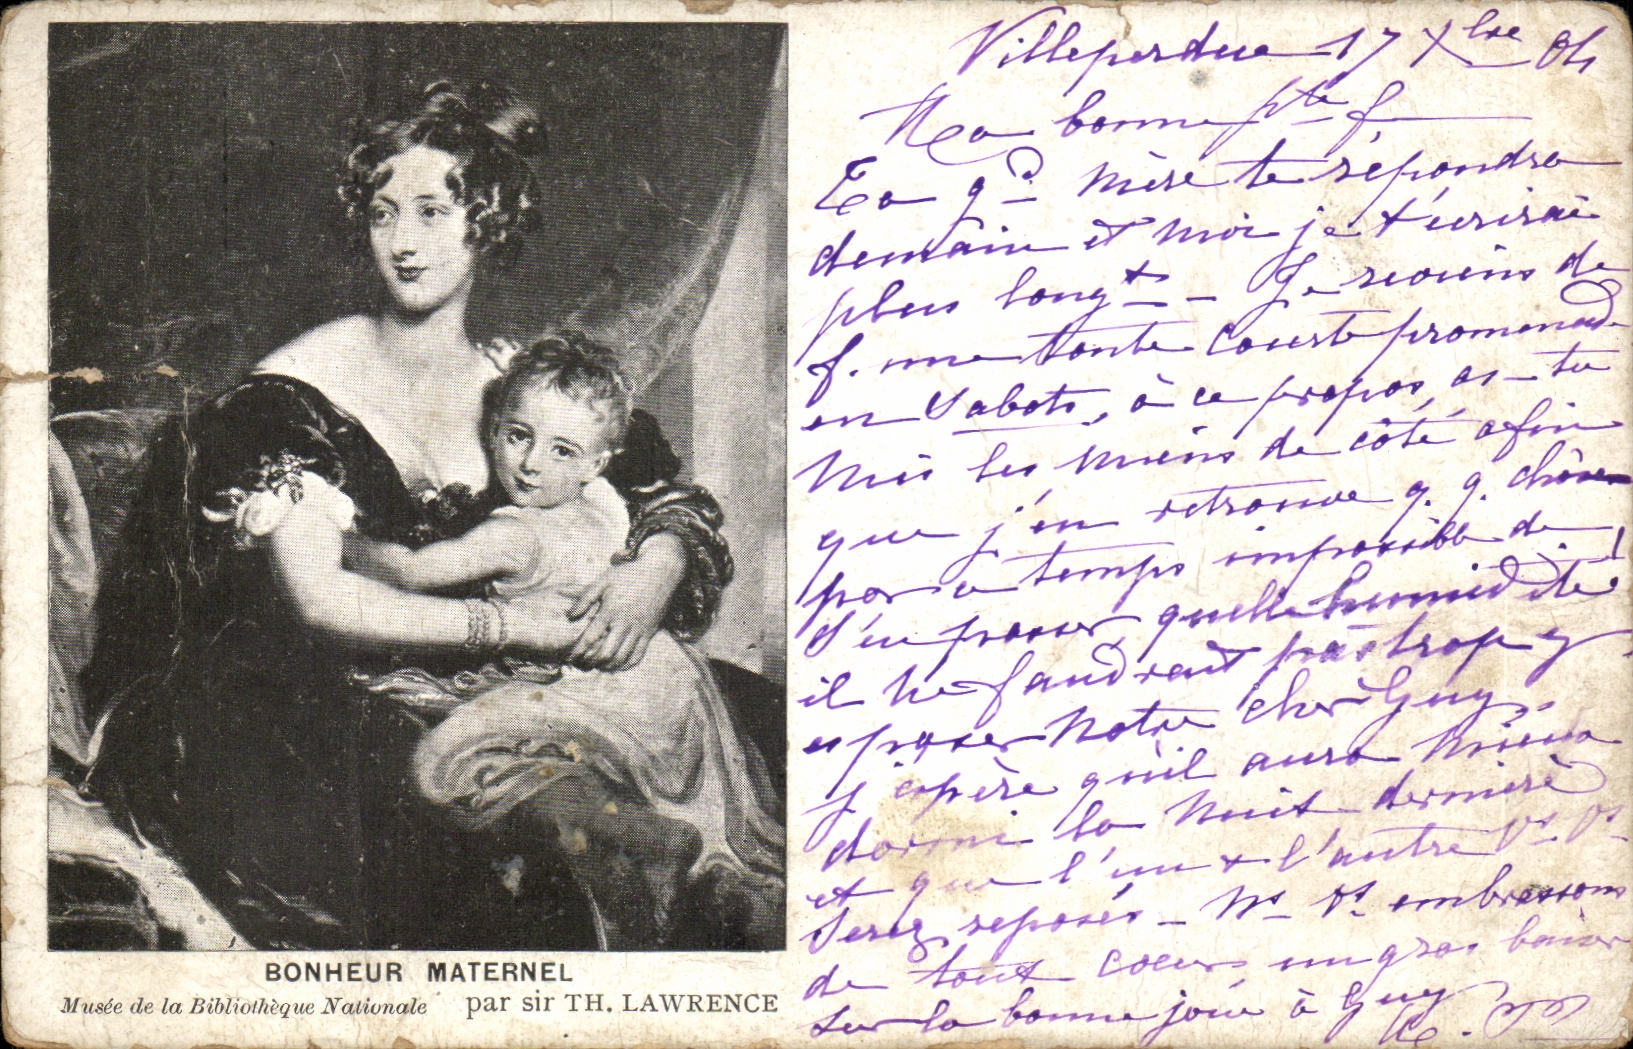 BONHEUR MATERNEL
Musée de la Bibliothèque Nationale par sir TH. LAWRENCE
Villeperdue 17 Xbre 04
Ma bonne pte f.
Ta gd mère te répondra
demain et moi je t'écrirai
plus longt — Je reviens de
f. une toute courte promenade
en Sabots, à ce propos, as-tu
mis les miens de côté afin
que j'en retrouve q. q. chose
par ce temps impossible de
s'en passer, quelle humidité !
il ne faudrait pas trop y
exposer notre cher Guy,
j'espère qu'il aura mieux
dormi la nuit dernière
et que l'un & l'autre vs vs
serez reposés — Ns vs embrassons
de tout coeur un gros baiser
sur la bonne joue à Guy